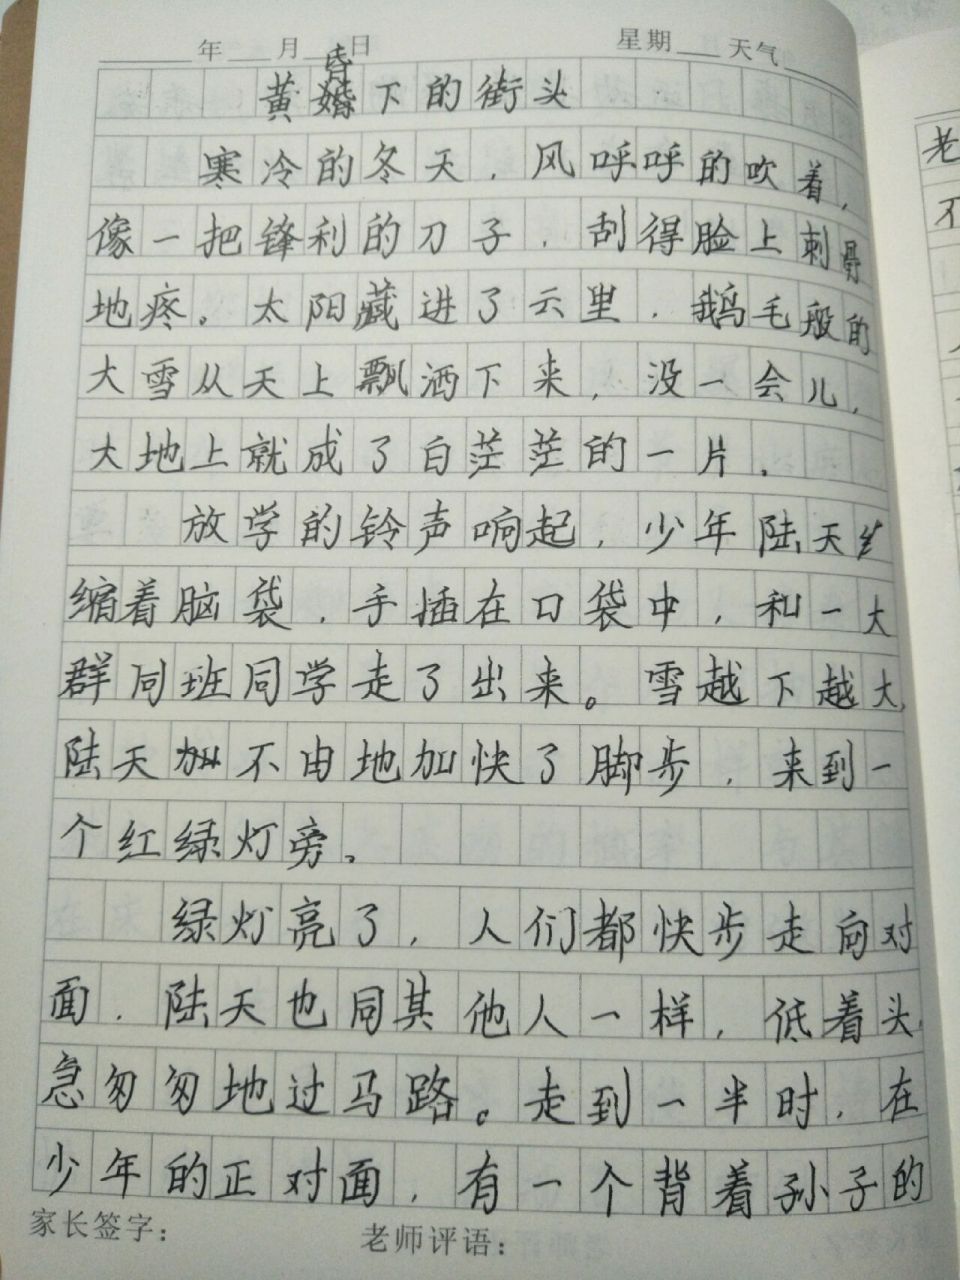 年 月 日 星期 天气
昏
黄婚下的街头
寒冷的冬天，风呼呼的吹着，
像一把锋利的刀子，刮得脸上刺骨
地疼。太阳藏进了云里，鹅毛般的
大雪从天上飘洒下来，没一会儿，
大地上就成了白茫茫的一片，
放学的铃声响起，少年陆天
缩着脑袋，手插在口袋中，和一大
群同班同学走了出来。雪越下越大，
陆天不由地加快了脚步，来到一
个红绿灯旁，
绿灯亮了，人们都快步走向对
面，陆天也同其他人一样，低着头，
急匆匆地过马路。走到一半时，在
少年的正对面，有一个背着孙子的
家长签字： 老师评语：
老
不